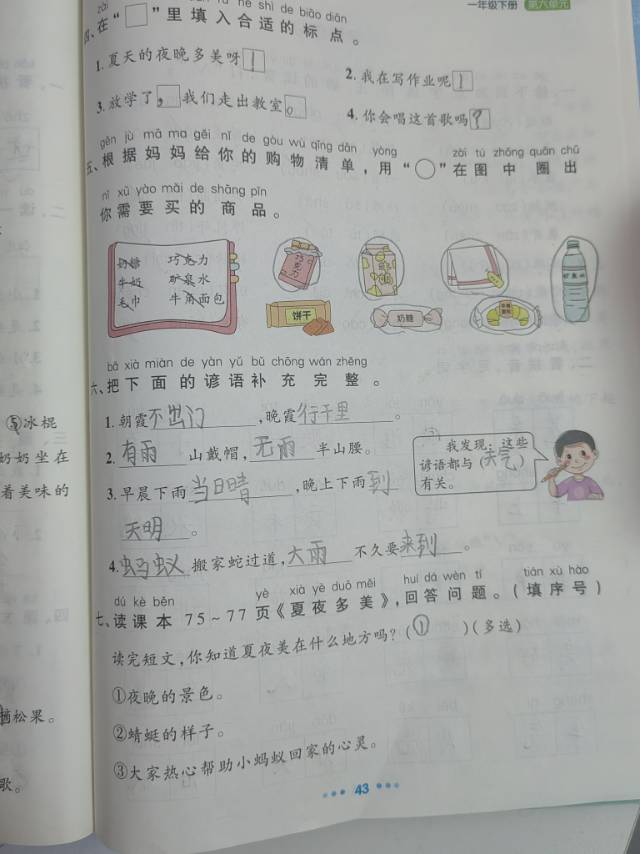 一年级下册 第六单元
hé shì de biāo diǎn
四、在“□”里填入合适的标点。
1.夏天的夜晚多美呀!
2.我在写作业呢!
3.放学了,我们走出教室。
4.你会唱这首歌吗?
gēn jù mā ma gěi nǐ de gòu wù qīng dān yòng zài tú zhōng quān chū
五、根据妈妈给你的购物清单,用“○”在图中圈出
nǐ xū yào mǎi de shāng pǐn
你需要买的商品。
奶糖 巧克力
牛奶 矿泉水
毛巾 牛角面包
巧克力
饼干
奶糖
bǎ xià miàn de yàn yǔ bǔ chōng wán zhěng
六、把下面的谚语补充完整。
1.朝霞不出门,晚霞行千里。
2.有雨山戴帽,无雨半山腰。
我发现:这些
谚语都与(天气)
有关。
3.早晨下雨当日晴,晚上下雨到
天明。
4.蚂蚁搬家蛇过道,大雨不久要来到。
dú kè běn yè xià yè duō měi huí dá wèn tí tián xù hào
七、读课本75~77页《夏夜多美》,回答问题。(填序号)
读完短文,你知道夏夜美在什么地方吗?(①)(多选)
①夜晚的景色。
②蜻蜓的样子。
③大家热心帮助小蚂蚁回家的心灵。
43
⑤冰棍
奶奶坐在
着美味的
摘松果。
歌。